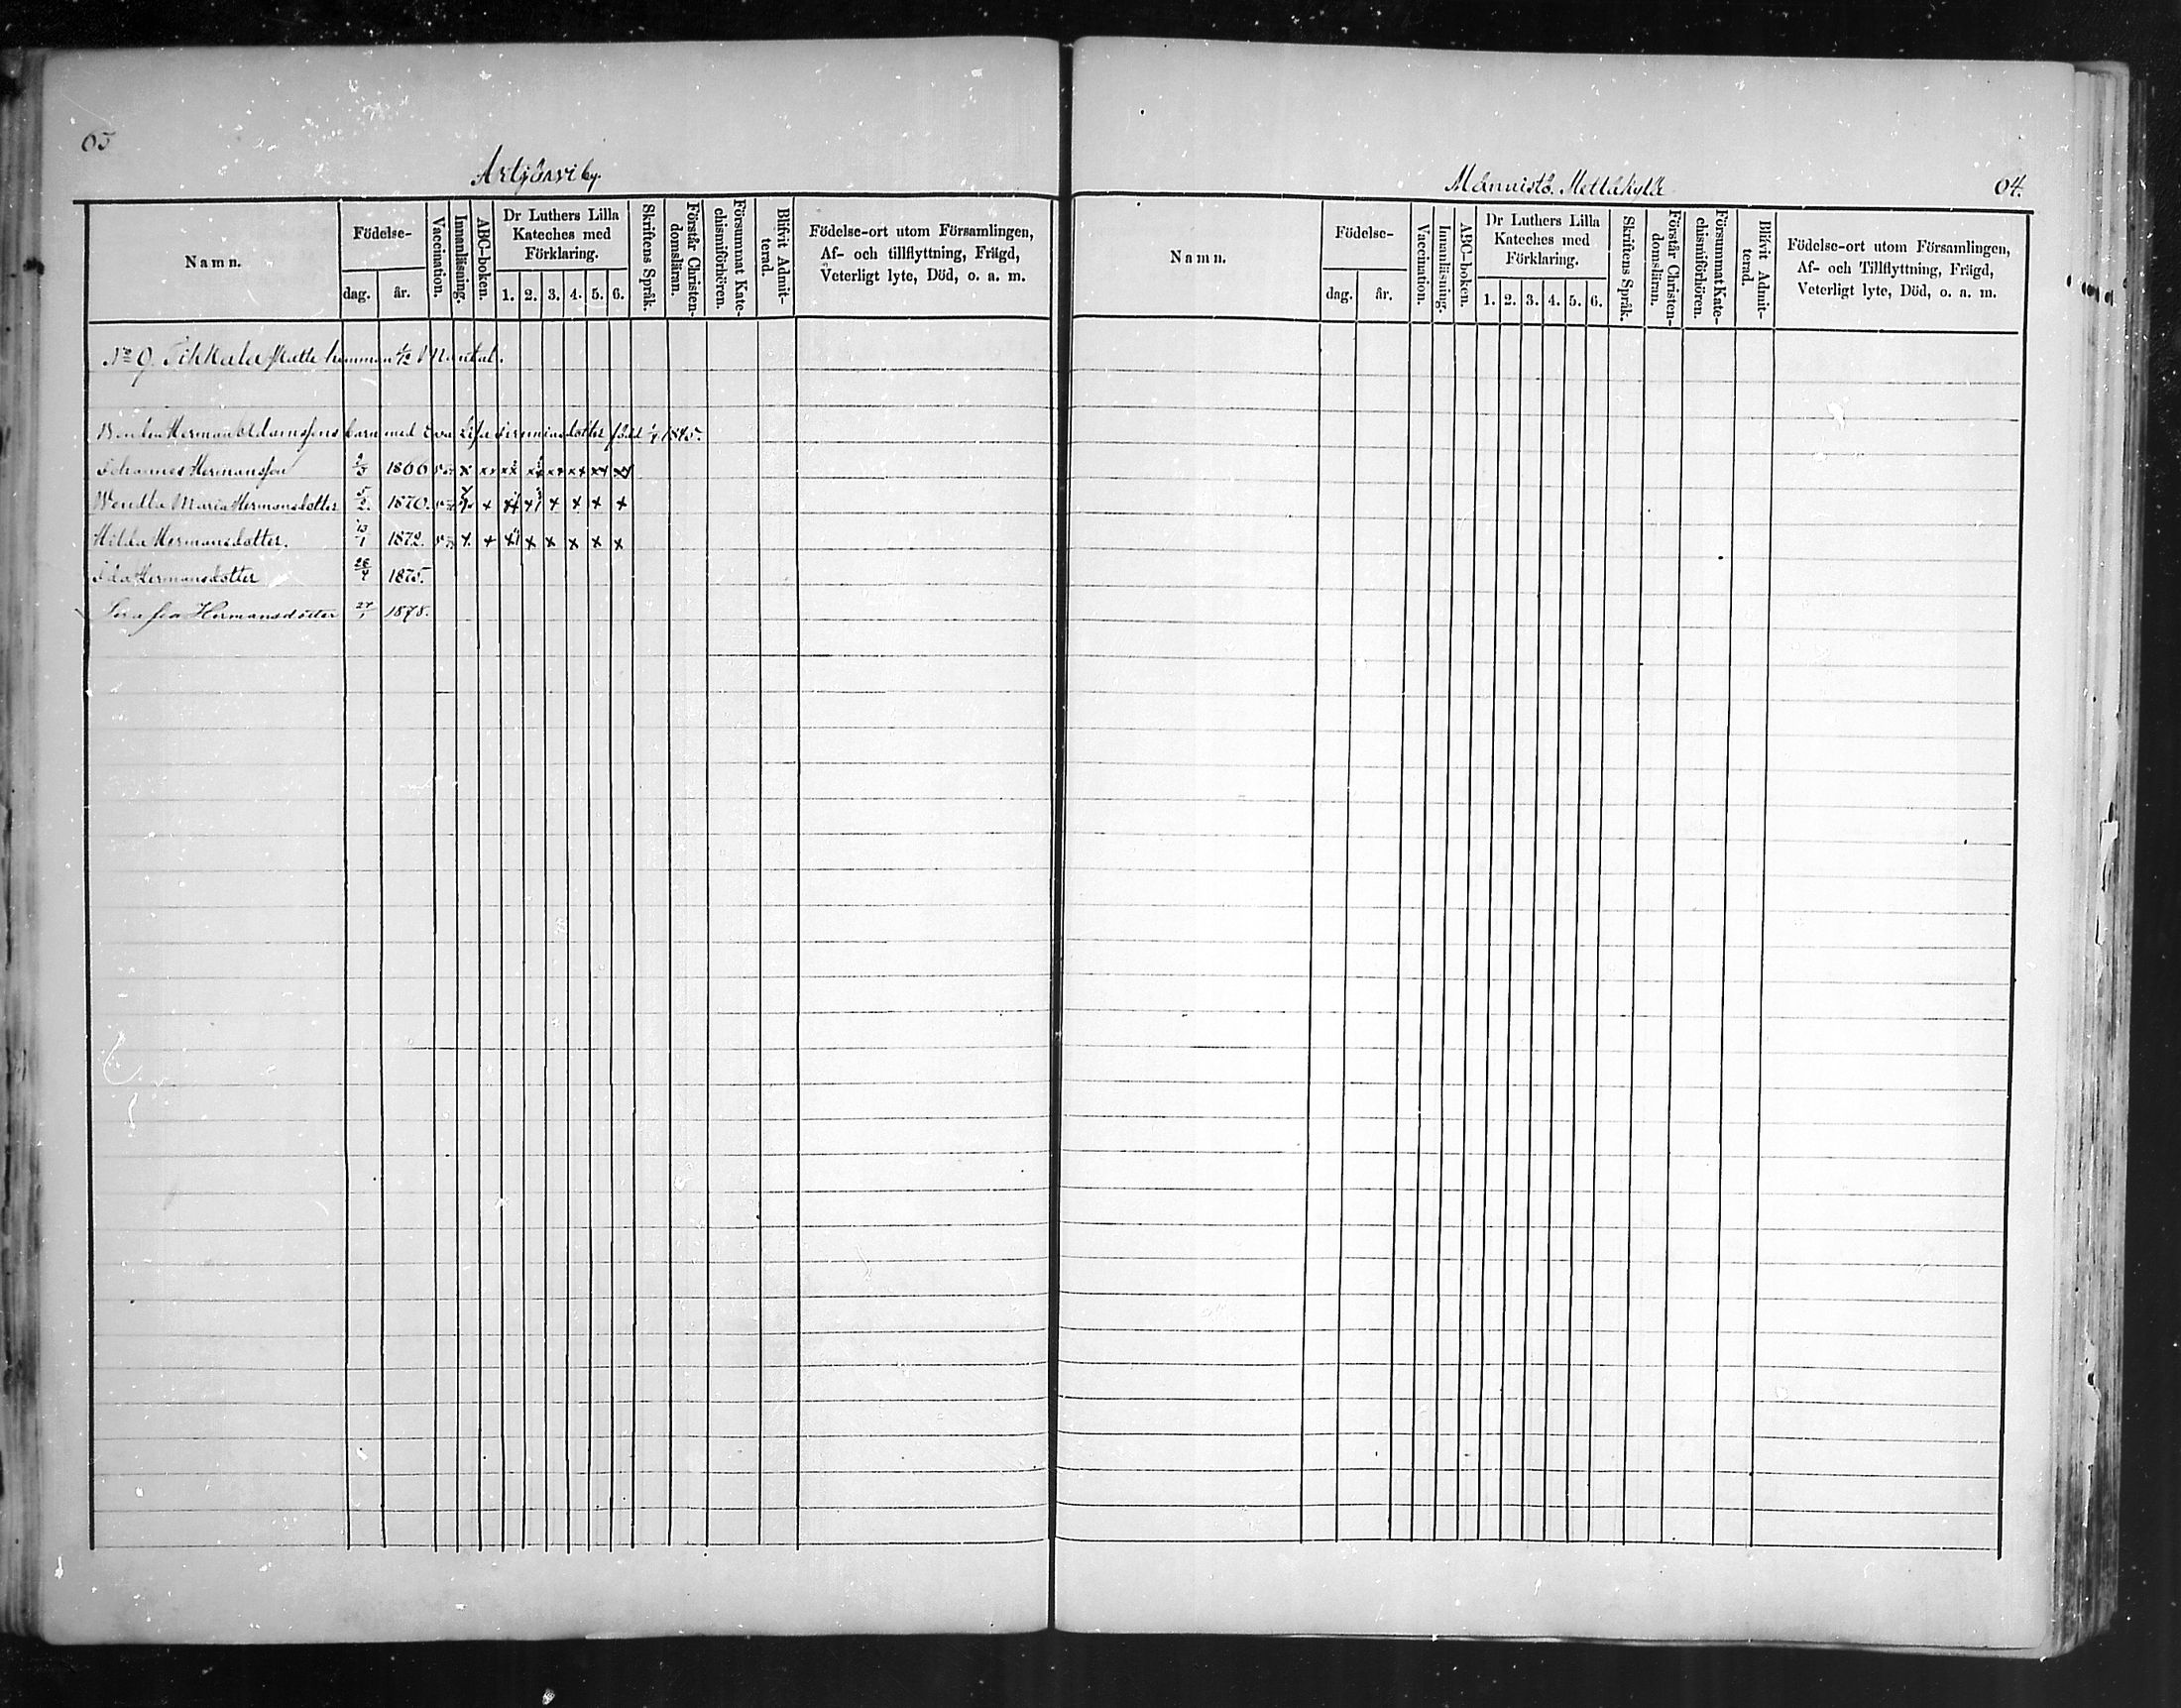 63
Artjärvi by.
Namn.
Födelse-
dag.
år.
Vaccination.
Innanläsning.
ABC-boken.
Dr Luthers Lilla
Kateches med
Förklaring.
1. 2. 3. 4. 5. 6.
Skriftens Språk.
Förstår Christen-
domsläran.
Försummat Kate-
chismiförhören.
Blifvit Admit-
terad.
Födelse-ort utom Församlingen,
Af- och tillflyttning, Frägd,
Veterligt lyte, Död, o. a. m.
No 9. Tikkala skatte hemman 1/2 Mantal.
Bonden Herman Adamssons barn med Eva Lisa född 1/4 1845.
Johannes Hermansson 2/3 1866 x xx xx xx xx xx xx xx
Wendla Maria Hermansdotter 5/2. 1870. x x x x x x x
Hilda Hermansdotter. 13/1 1872. x x x x x x x x
Ida Hermansdotter 26/4 1875.
Serafia Hermansdotter 27/1 1878.
Männistö. Mettäkylä
64.
Namn.
Födelse-
dag.
år.
Vaccination.
Innanläsning.
ABC-boken.
Dr Luthers Lilla
Kateches med
Förklaring.
1. 2. 3. 4. 5. 6.
Skriftens Språk.
Förstår Christen-
domsläran.
Försummat Kate-
chismiförhören.
Blifvit Admit-
terad.
Födelse-ort utom Församlingen,
Af- och Tillflyttning, Frägd,
Veterligt lyte, Död, o. a. m.